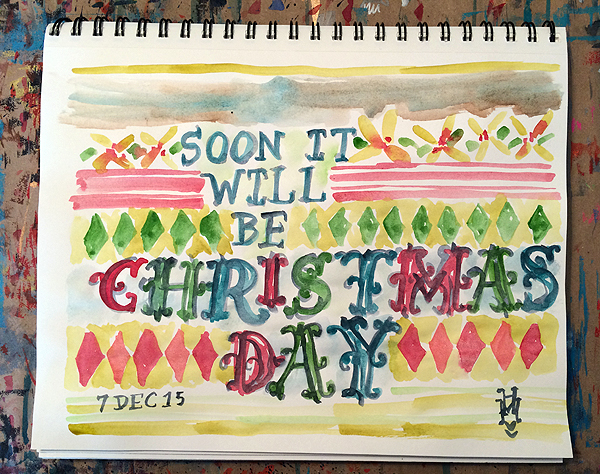 SOON IT
WILL
BE
CHRISTMAS
DAY
7 DEC 15